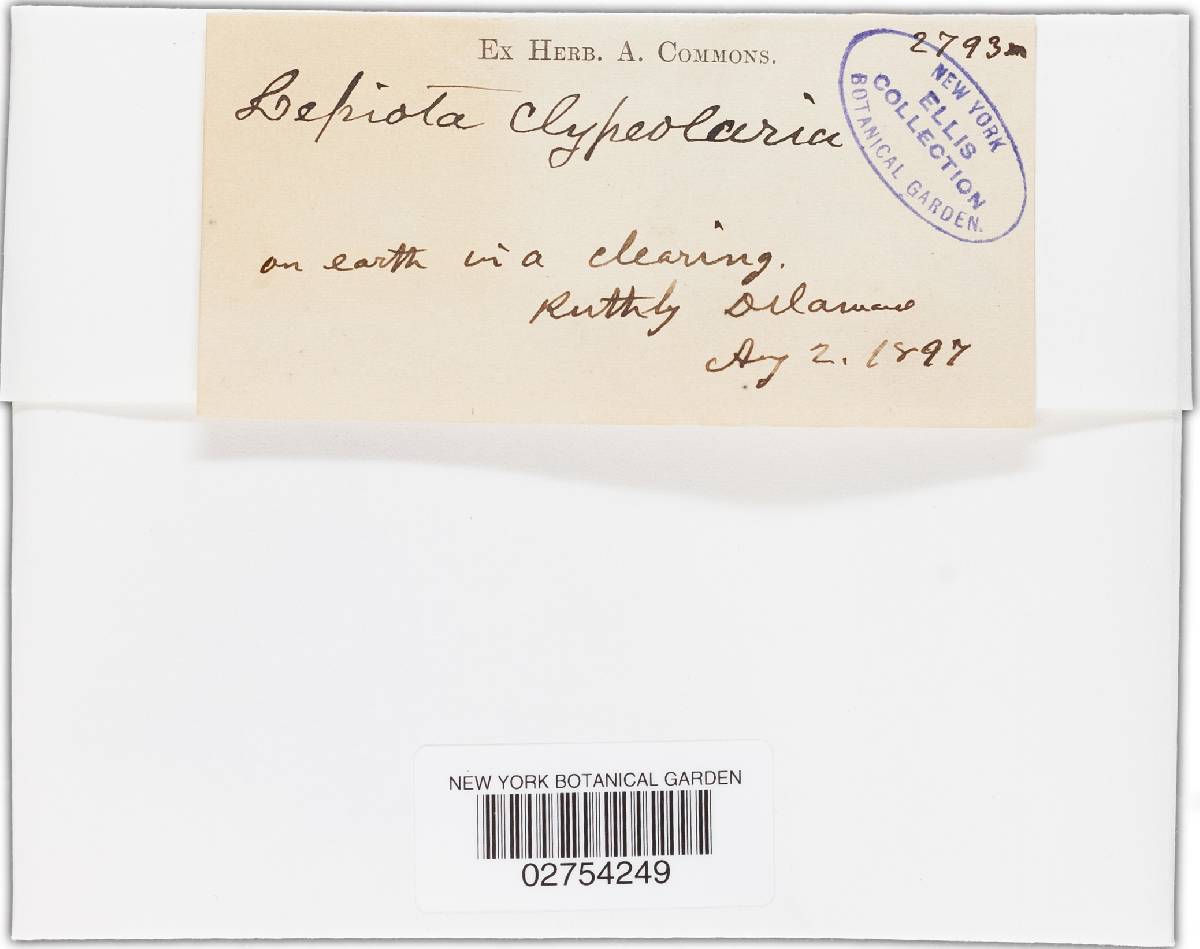 2793
Ex Herb. A. Commons.
Lepiota clypeolaria
NEW YORK
ELLIS
COLLECTION
BOTANICAL GARDEN.
on earth in a clearing.
Delaware
Aug 2. 1897
NEW YORK BOTANICAL GARDEN
02754249